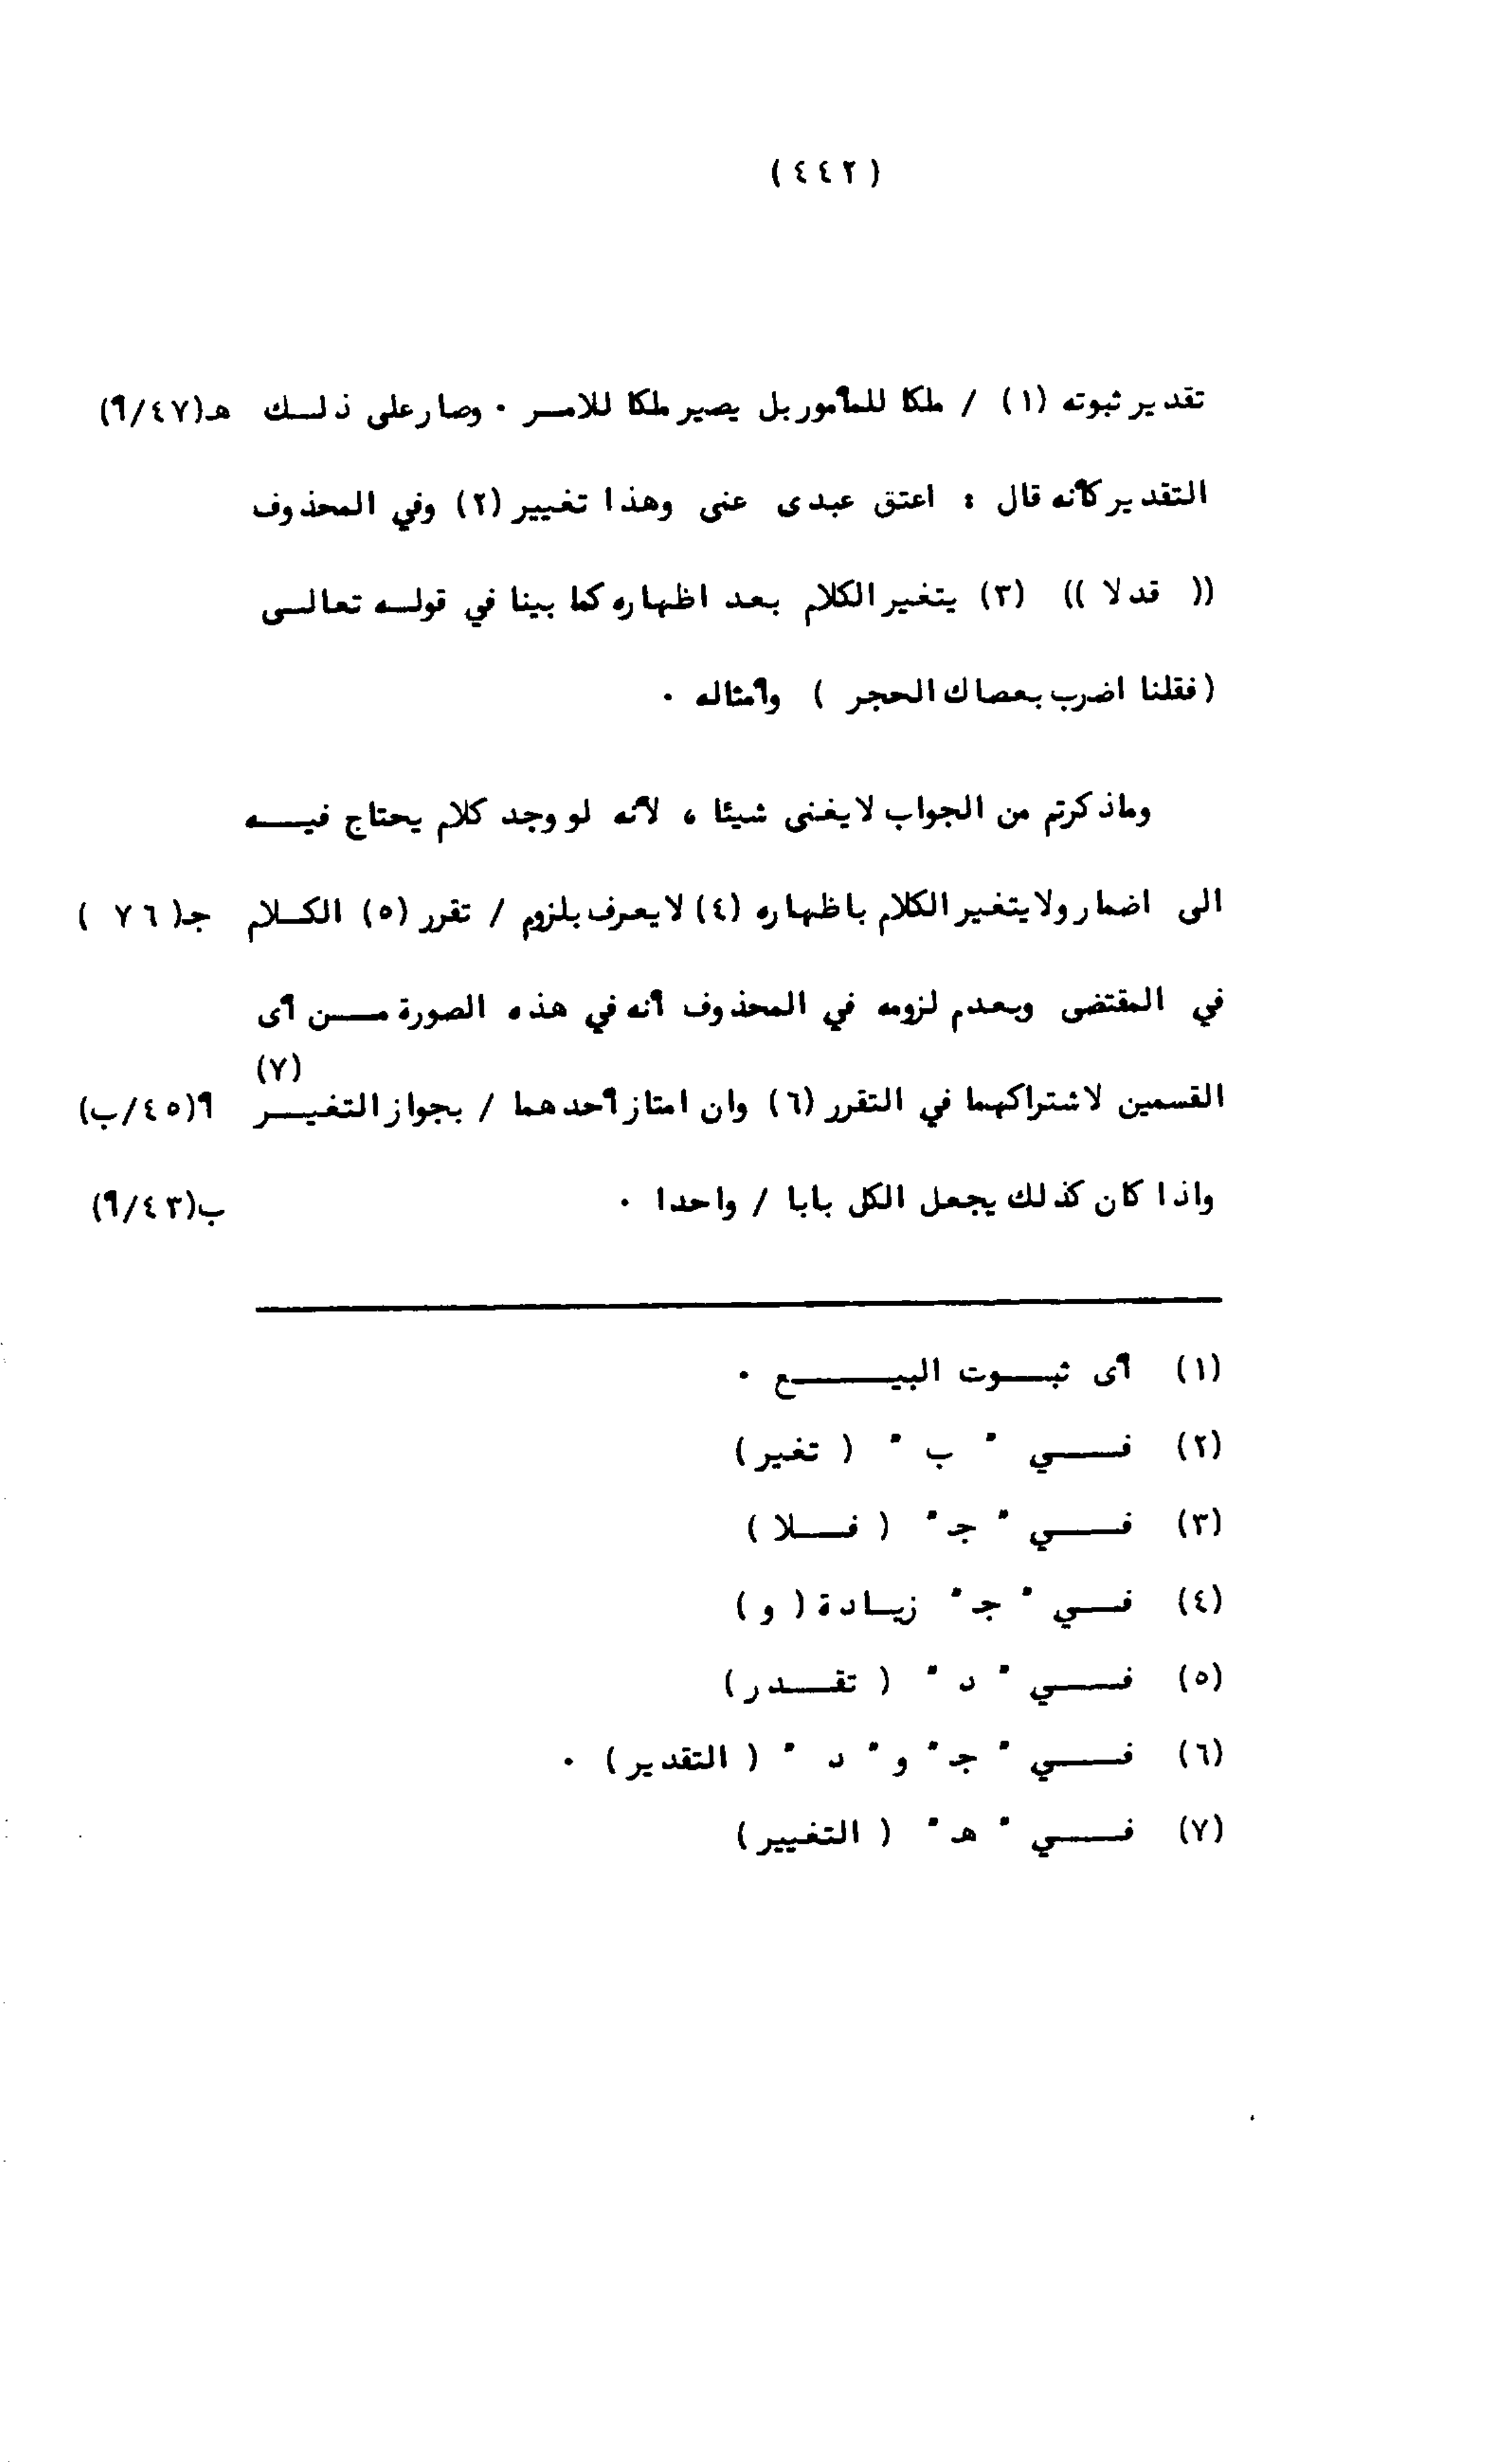 (٤٤٢)
تقدير ثبوته (١) / ملكا للمأمور بل يصير ملكا للامـر ٠ وصار على ذلـك هـ(٤٧/أ)
التقدير كأنه قال : اعتق عبدى عنى وهذا تغيير (٢) وفي المحذوف
(( قد لا )) (٣) يتغير الكلام بعد اظهاره كما بينا في قولـه تعالـى
(فقلنا اضرب بعصاك الحجر ) وأمثاله ٠
وماذكرتم من الجواب لايغنى شيئا ، لأنه لو وجد كلام يحتاج فيـه
الى اضمار ولايتغير الكلام باظهاره (٤) لايعرف بلزوم / تقرر (٥) الكـلام جـ(٧٦ )
في المقتضى وبعدم لزومه في المحذوف أنه في هذه الصورة مـن أى
القسمين لاشتراكهما في التقرر (٦) وان امتاز أحدهما / بجواز التغيـر (٧) أ(٤٥/ب)
واذا كان كذلك يجعل الكل بابا / واحدا ٠ ب(٤٣/أ)
(١) أى ثبـوت البيـع ٠
(٢) فـي " ب " ( تغير)
(٣) فـي " جـ" ( فـلا )
(٤) فـي " جـ" زيـادة ( و )
(٥) فـي " د " ( تقـدر)
(٦) فـي " جـ" و " د " ( التقدير) ٠
(٧) فـي " هـ" ( التغيير)